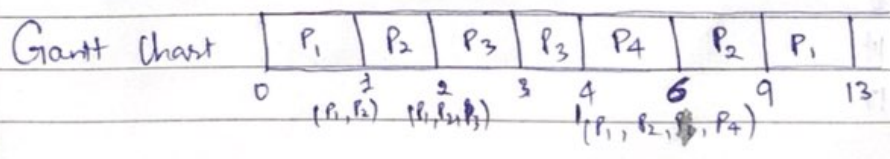 Gantt Chart P1 P2 P3 P3 P4 P2 P1
0 1 2 3 4 6 9 13
(P1, P2) (P1, P2, P3) (P1, P2, , P4)